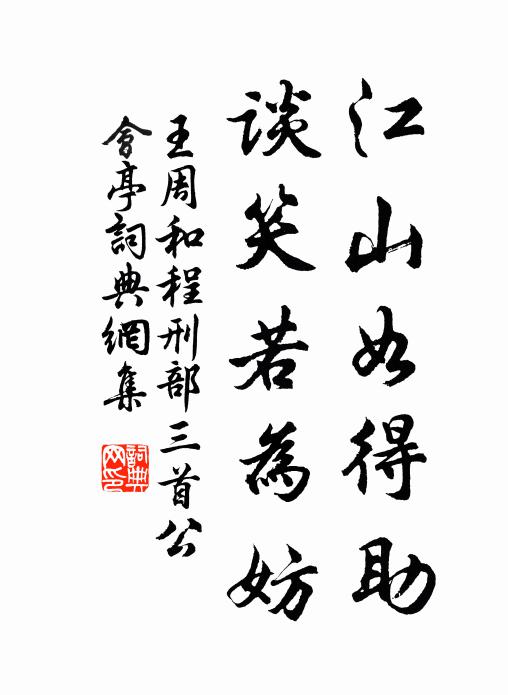 江山如得助
談笑若為妨
王周和程刑部三首公
會亭詞典網集
詞典
网印